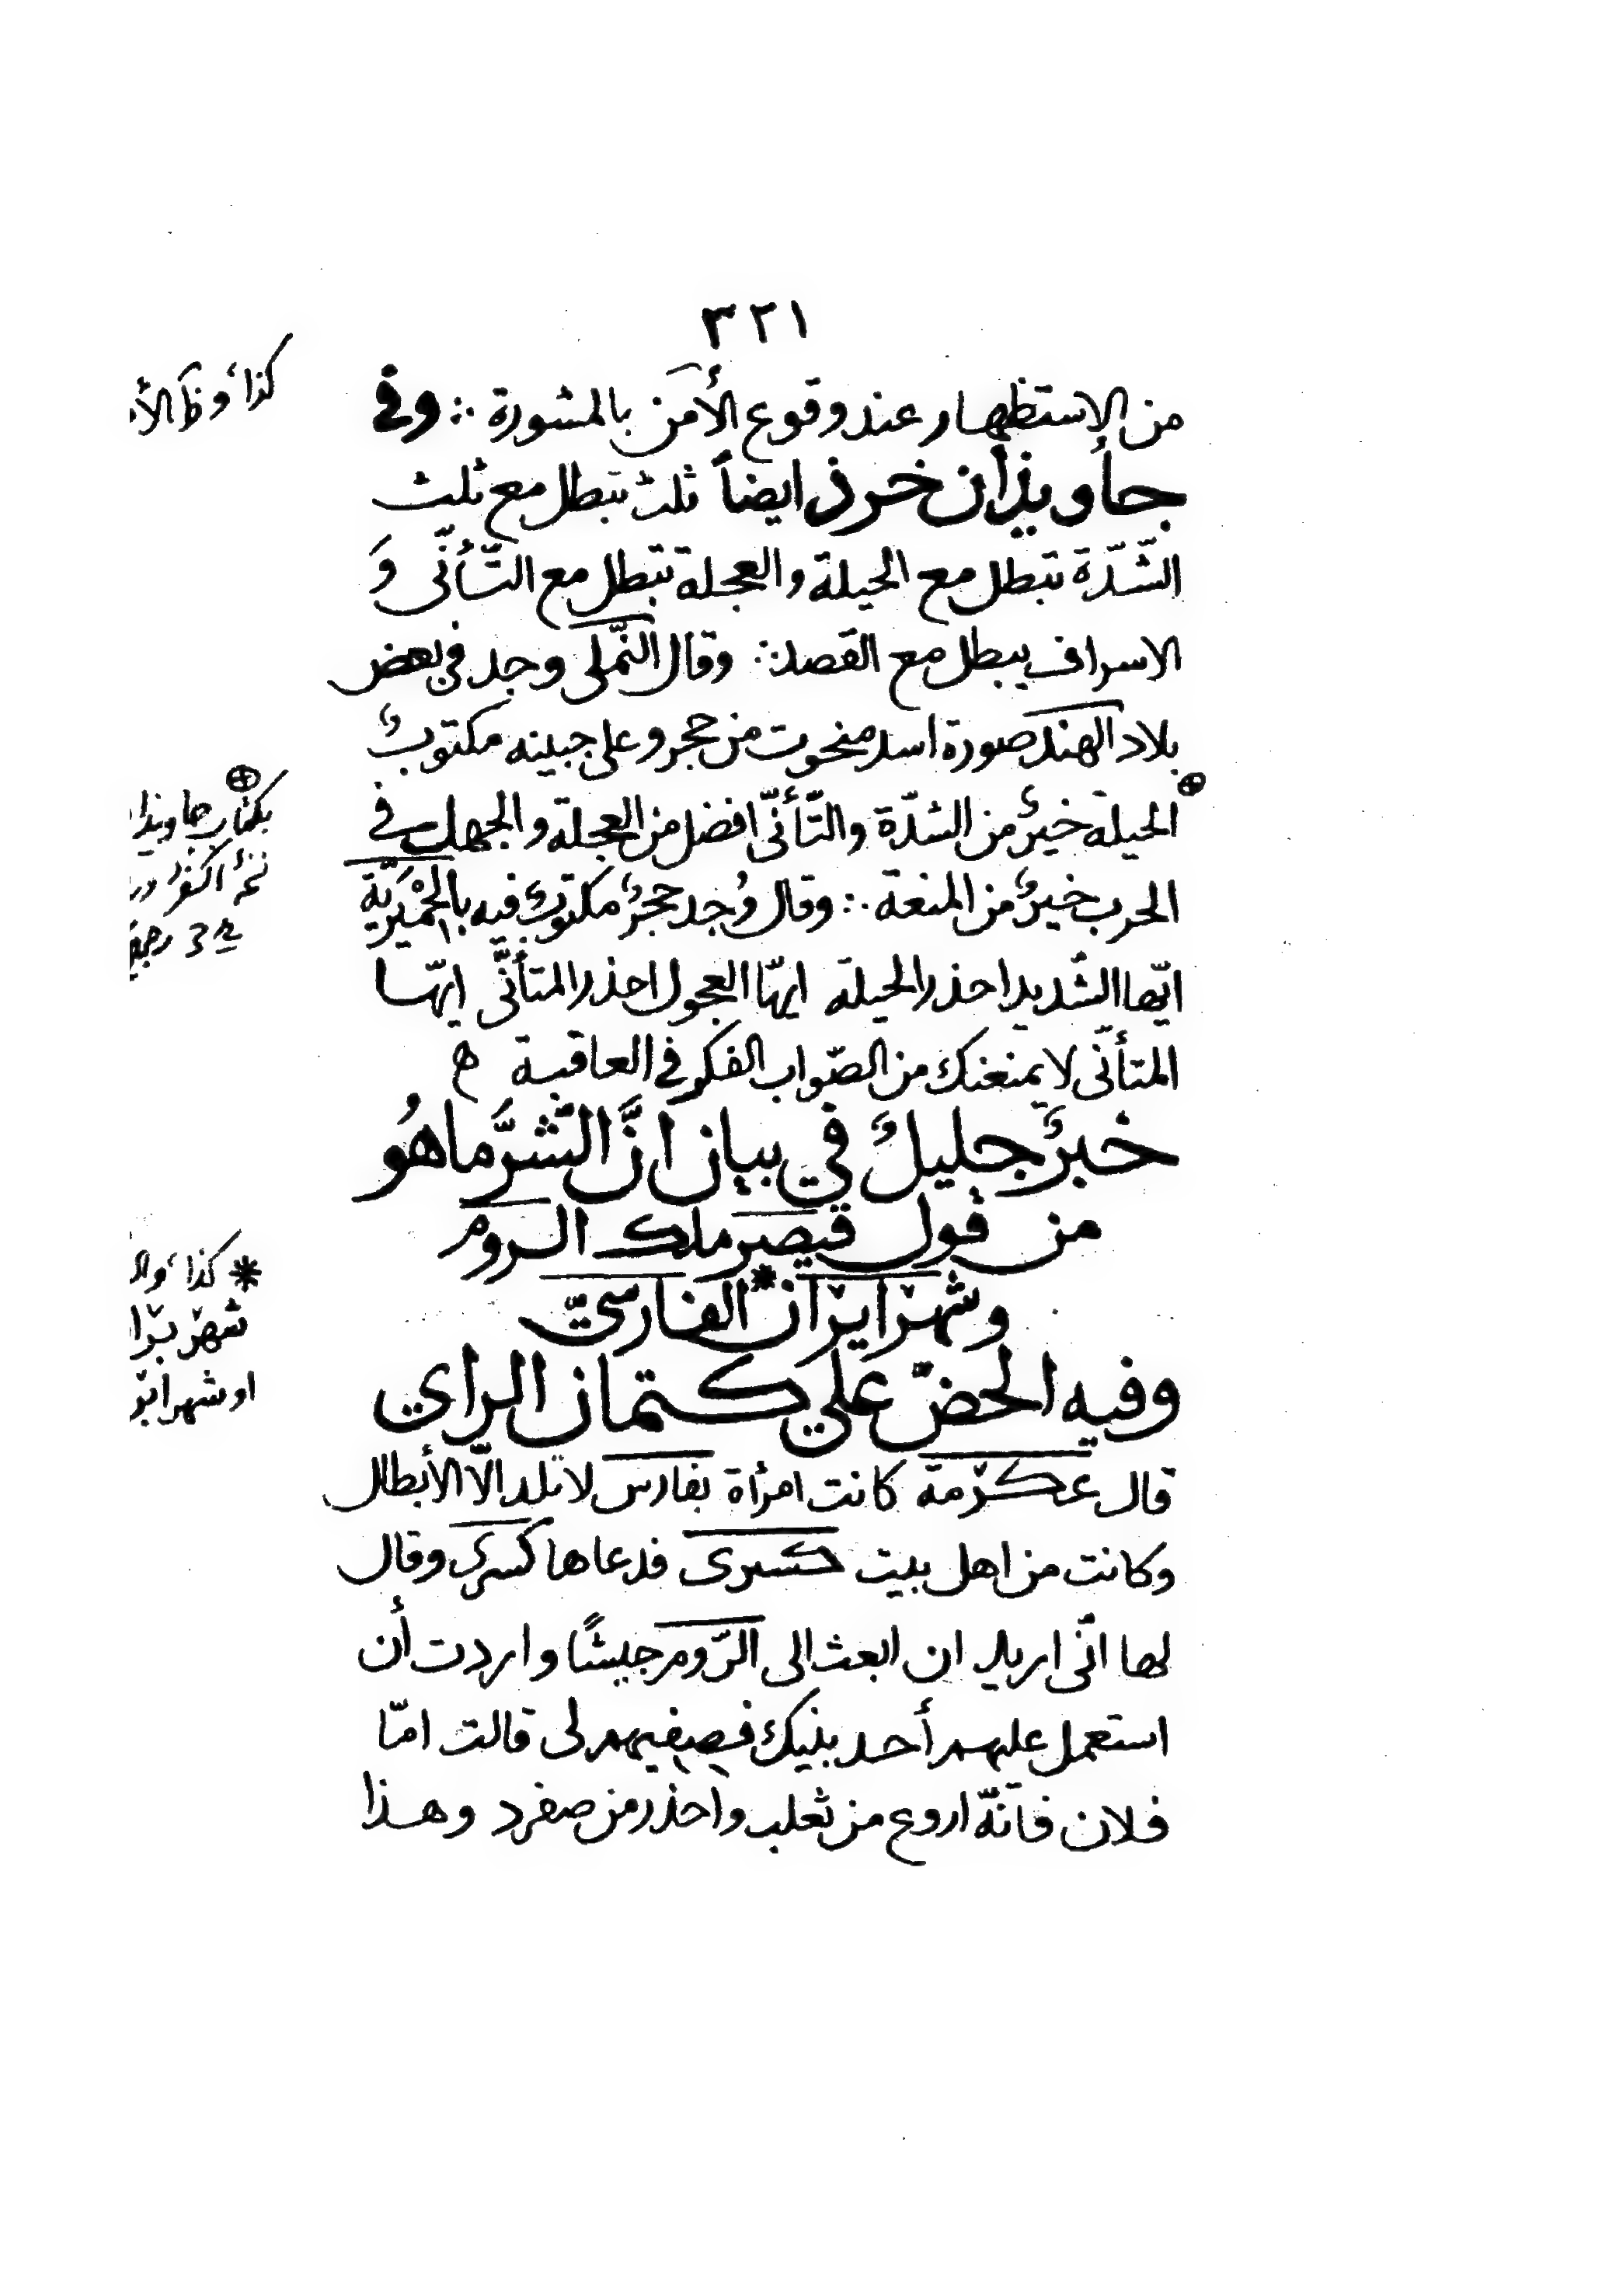 ٣٢١
من الاستظهار عند وقوع الأمن بالمشورة ∴ وفى
جاويذان خرذ ايضاً ثلث تبطل مع ثلث
الشّدّة تبطل مع الحيلة والعجلة تبطل مع التّأنّى وَ
الاسراف يبطل مع القصد ∴ وقال النّملى وجد فى بعض
بلاد الهند صورة اسد منحوت من حجر وعلى جبينه مكتوبٌ
⊕ الحيلة خيرٌ من الشدّة والتّأنّى افضل من العجلة والجهل فى
الحرب خيرٌ من المنعة ∴ وقال وُجد حجرٌ مكتوبٌ فيه بالحْميَريّة
ايّها الشّديد احذر الحيلة ايّها العجول احذر المتأنّى ايّها
المتأنّى لا يمنعنك من الصّواب الفكر فى العاقبة ه
خبرٌ جليلٌ في بيان انَّ الشّرَّ ما هُو
من قول قيصر ملك الروم
وشهرايران* الفارسيّ
وفيه الحضّ علي كتمان الراي
قال عكرمة كانت امرأة بفارس لا تلد الّا الأبطال
وكانت من اهل بيت كسرى فدعاها كسرى وقال
لها انّى اريد ان ابعث الى الرّوم جيشًا واردت أن
استعمل عليهم أحد بنيك فصفيهم لى قالت امّا
فلان فانّه اروع من ثعلب واحذر من صفرد وهذا
كذا
⊕
بكتاب جاويذا
* كذا
شهر برا
او شهر ابر